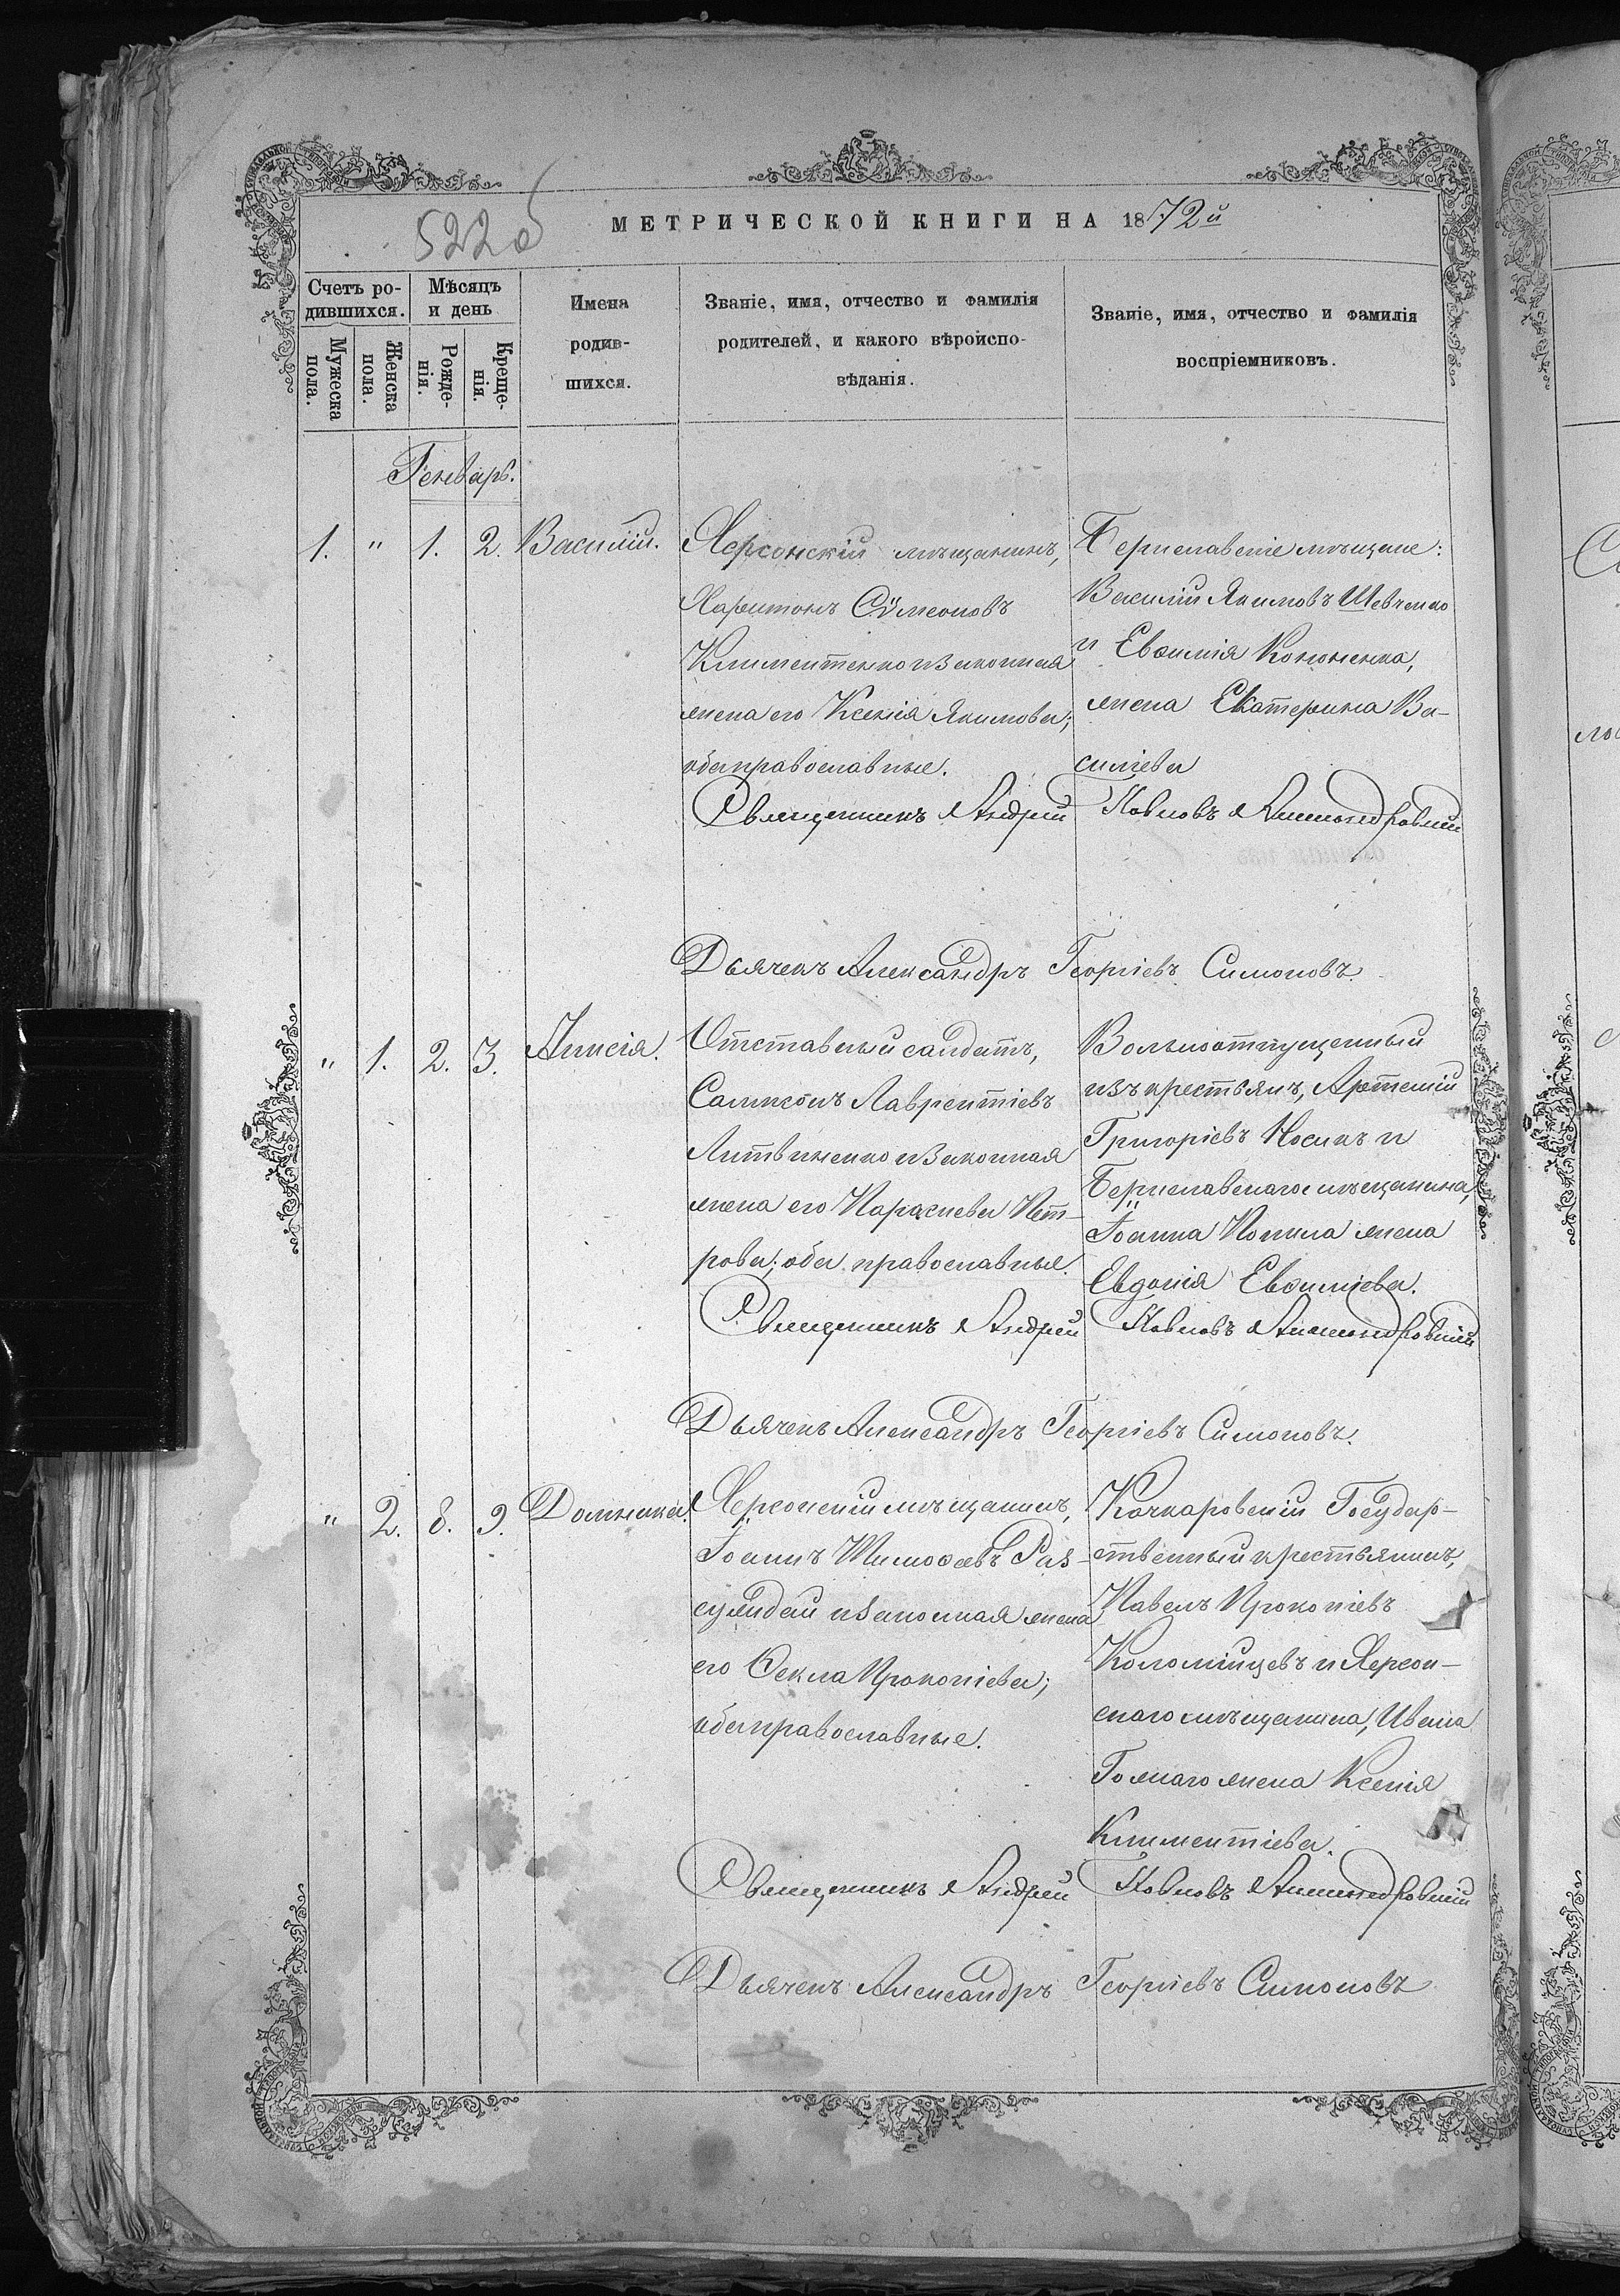 522об
МЕТРИЧЕСКОЙ КНИГИ НА 1872й
Счетъ ро-
дившихся.
Мужеска
пола.
Женска
пола.
Мѣсяцъ
и день
Рожде-
нія.
Креще-
нія.
Имена
родив-
шихся.
Званіе, имя, отчество и фамилія
родителей, и какого вѣроиспо-
вѣданія.
Званіе, имя, отчество и фамилія
воспріемниковъ.
Генварь.
1. " 1. 2. Василій.
Херсонскій мѣщанинъ,
Харитонъ Сѵмеоновъ
Климентенко и законная
жена его Ксенія Якимова;
оба православные.
Бериславскіе мѣщане:
Василій Якимовъ Шевченко
и Евѳимія Кононенка,
жена Екатерина Ва-
силіева
Священникъ Андрей Павловъ
Дьячекъ Александръ Георгіевъ Симоновъ.
" 1. 2. 3. Анисія.
Отставный салдатъ,
Сампсонъ Лаврентіевъ
Литвиненко и законная
жена его Параскева Пет-
рова; оба православные.
Вольноотпущенный
изъ крестьянъ, Артемій
Григоріевъ Носикъ и
Бериславскаго мѣщанина,
Іоанна жена
Евдокія Евѳиміева.
Священникъ Андрей Павловъ
Дьячекъ Александръ Георгіевъ Симоновъ.
" 2. 8. 9. Домникія.
Херсонскій мѣщанинъ,
Іоаннъ Тимоѳеевъ Раз-
сундай и законная жена
его Ѳекла Прокопіева;
оба православные.
Качкаровскій Государ-
ственный крестьянинъ,
Павелъ Прокопіевъ
Коломійцевъ и Херсон-
скаго мѣщанина, Ивана
жена Ксенія
Климентіева.
Священникъ Андрей Павловъ
Дьячекъ Александръ Георгіевъ Симоновъ